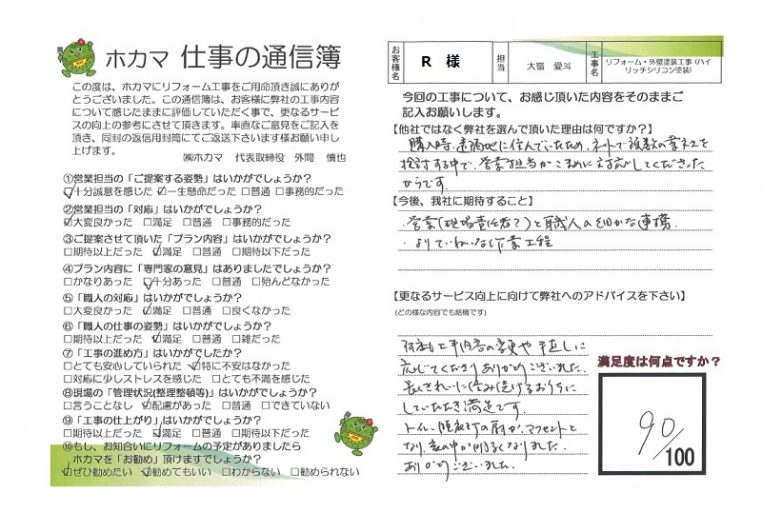 ホカマ 仕事の通信簿
この度は、ホカマにリフォーム工事をご用命頂き誠にありが
とうございました。この通信簿は、お客様に弊社の工事内容
について感じたままに評価していただく事で、更なるサービ
スの向上の参考にさせて頂きます。率直なご意見をご記入を
頂き、同封の返信用封筒にてご返送下さいます様お願い申し
上げます。
㈱ホカマ 代表取締役 外間 慎也
①営業担当の「ご提案する姿勢」はいかがでしょうか?
☑十分誠意を感じた ☑一生懸命だった □普通 □事務的だった
②営業担当の「対応」はいかがでしょうか?
☑大変良かった □満足 □普通 □事務的だった
③ご提案させて頂いた「プラン内容」はいかがでしょうか?
□期待以上だった ☑満足 □普通 □期待以下だった
④プラン内容に「専門家の意見」はありましたでしょうか?
□かなりあった ☑十分あった □普通 □殆んどなかった
⑤「職人の対応」はいかがでしょうか?
□大変良かった ☑満足 □普通 □良くなかった
⑥「職人の仕事の姿勢」はいかがでしょうか?
□期待以上だった ☑満足 □普通 □雑だった
⑦「工事の進め方」はいかがでしたか?
□とても安心していられた ☑特に不安はなかった
□対応に少しストレスを感じた □とても不満を感じた
⑧現場の「管理状況(整理整頓等)」はいかがでしょうか?
□言うことなし ☑配慮があった □普通 □できていない
⑨「工事の仕上がり」はいかがでしょうか?
□期待以上だった ☑満足 □普通 □期待以下だった
⑩もし、お知合いにリフォームの予定がありましたら
ホカマを「お勧め」頂けますでしょうか?
☑ぜひ勧めたい ☑勧めてもいい □わからない □勧められない
お客様名 R 様 担当 大嶺 愛斗 工事名 リフォーム・外壁塗装工事(ハイ
リッチシリコン塗装)
今回の工事について、お感じ頂いた内容をそのままご
記入お願いします。
【他社ではなく弊社を選んで頂いた理由は何ですか?】
購入時、遠隔地に住んでいたため、ネットで複数の業社を
検討する中で、営業担当がこまめに対応してくださった
からです。
【今後、我社に期待すること】
・営業(現場責任者?)と職人の細かな連携
・よりていねいな作業工程
【更なるサービス向上に向けて弊社へのアドバイスを下さい】
(どの様な内容でも結構です)
工事内容の変更や手直しに
応じてくださりありがとうございました。
していただき満足です。
トイレ、アクセントと
なり、家の中が明るくなりました。
ありがとうございました。
満足度は何点ですか?
90/100